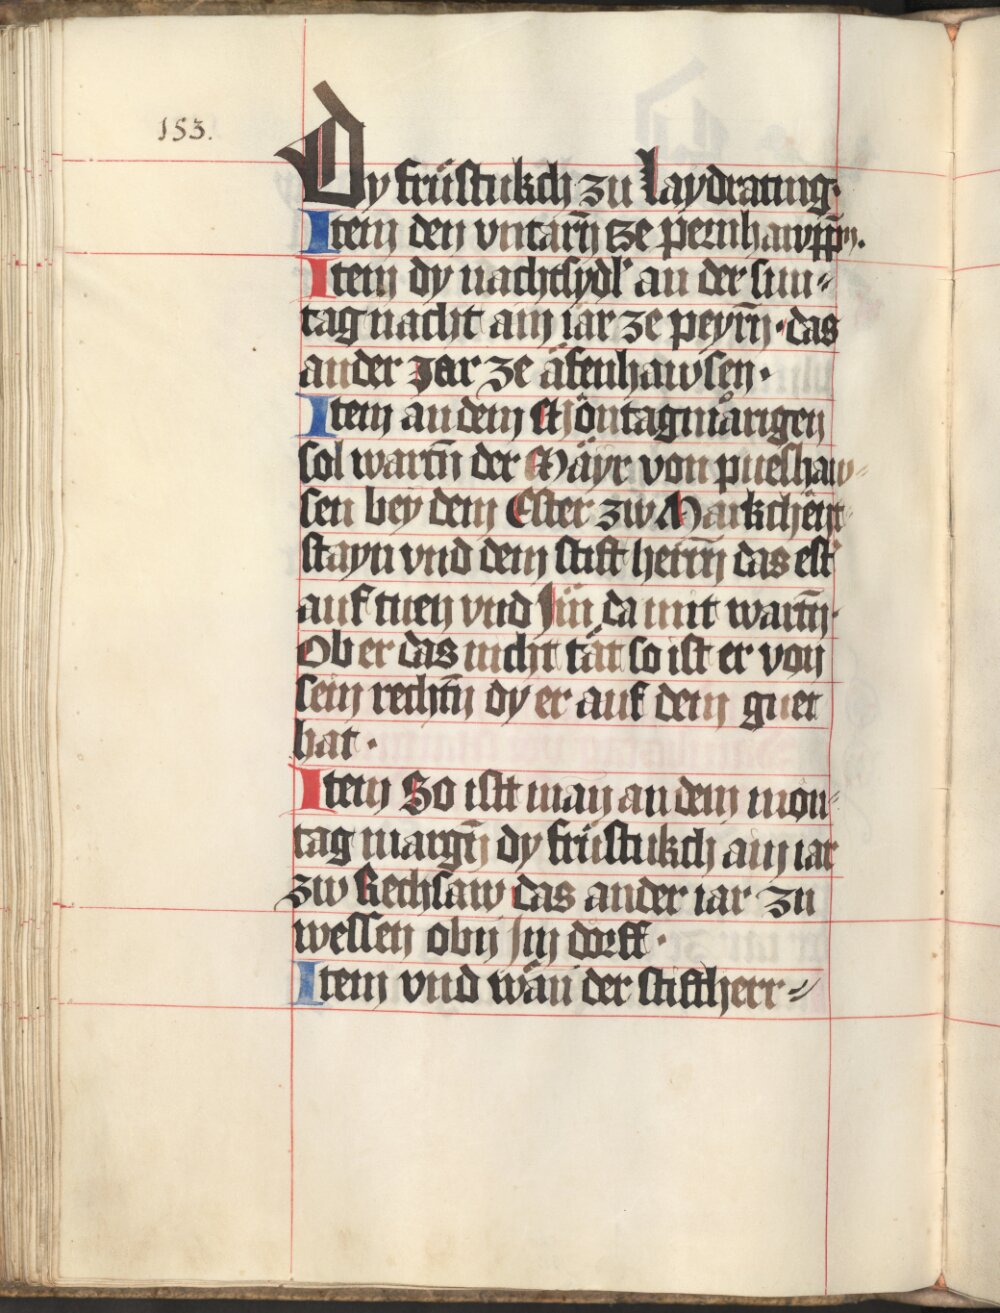 153.
Dy früstukch zu Laydratting.
Item den vntarñ tze pernhawppñ.
Item dy nachtsydl an der sun⸗
tag nacht ain iar ze peyrñ · das
ander Jar ze äfenhawsen ·
Item an dem Möntagmårigen
sol wartñ der Mäyr von puelhaw⸗
sen bey dem Ester zw Markchent
stayn vnd dem stift herrñ das est
auf tuen vnd Jm da mit wartñ ·
Ob er das nicht tät so ist er von
sein rechtñ dy er auf dem guet
hat ·
Item So istt man an dem mon⸗
tag margñ dy früstukch ain iar
zw Rechsaw das ander iar zu
wessen obñ jm dörff ·
Item vnd wän der stiftherr⸗